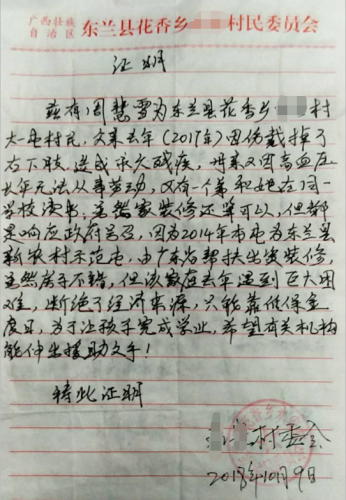 广西壮族
自治区
东兰县花香乡 村民委员会
证明
兹有周慧雪为东兰县花香乡 村
六屯村民，父亲去年（2017年）因伤截掉了
右下肢，造成永久残疾，母亲又因高血压
长年无法从事劳动，又有一个弟和她在同一
学校读书，虽然家装修还算可以，但都
是响应政府号召，因为2014年本屯为东兰县
新农村示范屯，由广东省帮扶出资装修，
虽然房子不错，但该家在去年遇到巨大困
难，断绝了经济来源，只能靠低保金
度日，为了让孩子完成学业，希望有关机构
能伸出援助之手！
特此证明
村委会
2018年10月9日